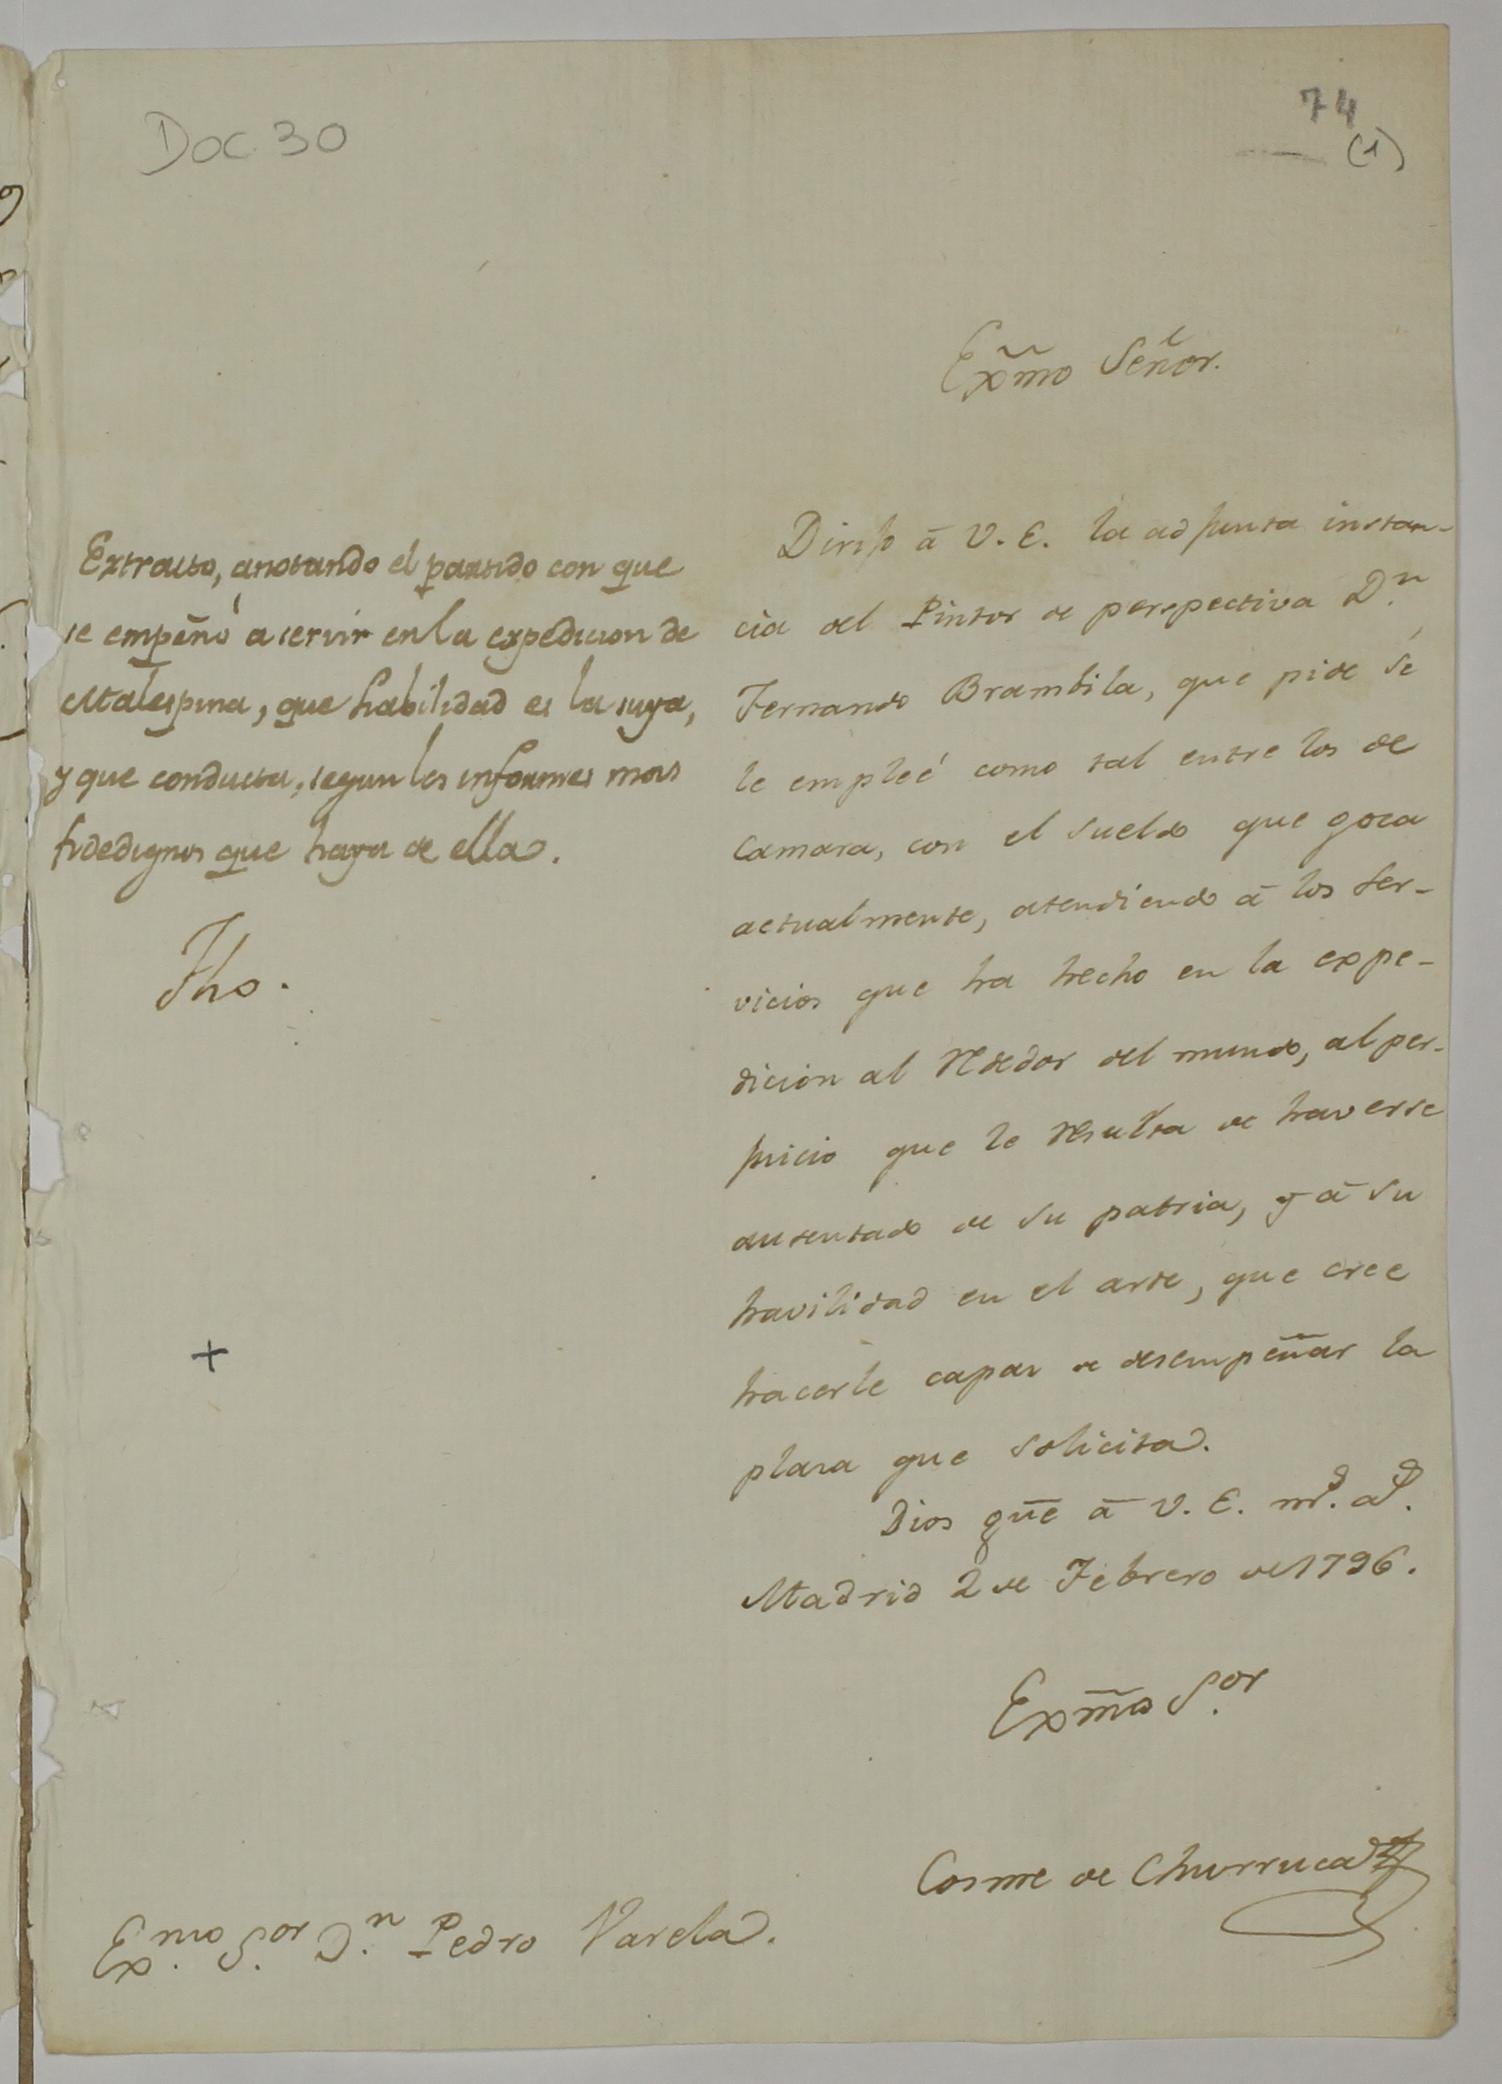 Doc. 30
74
(1)
Exmõ Señor.
Extracto, anotando el partido con que
se empeñó a servir en la expedicion de
Malespina, que habilidad es la suya,
y que conducta, segun los informes mas
fidedignos que haya de ella.
Fho.
+
Dirijo â V. E. la adjunta instan-
cia del Pintor de perspectiva D.n
Fernando Brambila, que pide se
le empleé como tal entre los de
Camara, con el sueldo que goza
actualmente, atendiendo â los ser-
vicios que ha hecho en la expe-
dicion al rededor del mundo, al per-
juicio que le resulta de haverse
ausentado de su patria, y â su
havilidad en el arte, que cree
hacerle capaz de desempeñar la
plaza que solicita.
Dios gũe â V. E. m.s a.s
Madrid 2 de Febrero de 1796.
Exmõ S.or
Cosme de Churruca
Ex.mo S.or D.n Pedro Varela.